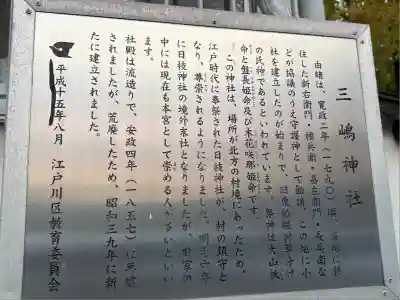 三嶋神社
由緒は、寛政二年（一七九〇）頃、
住した新右衛門・権兵衛・喜左衛門・長兵衛な
どが協議のうえ守護神として勧請、この地に小
社を建立したのが始まりで、旧東船堀
の氏神であるといわれています。祭神は大山祇
命と磐長姫命及び木花咲耶姫命です。
この神社は、場所が北方の村境にあったため、
江戸時代に奉祭された日枝神社が、村の鎮守と
なり、尊崇されるようになりました。明治六年
に日枝神社の境外末社となりましたが、
中には現在も本宮として崇める人が多いといい
ます。
社殿は流造りで、安政四年（一八五七）に再建
されましたが、荒廃したため、昭和三九年に新
たに建立されました。
平成十五年八月　江戸川区教育委員会